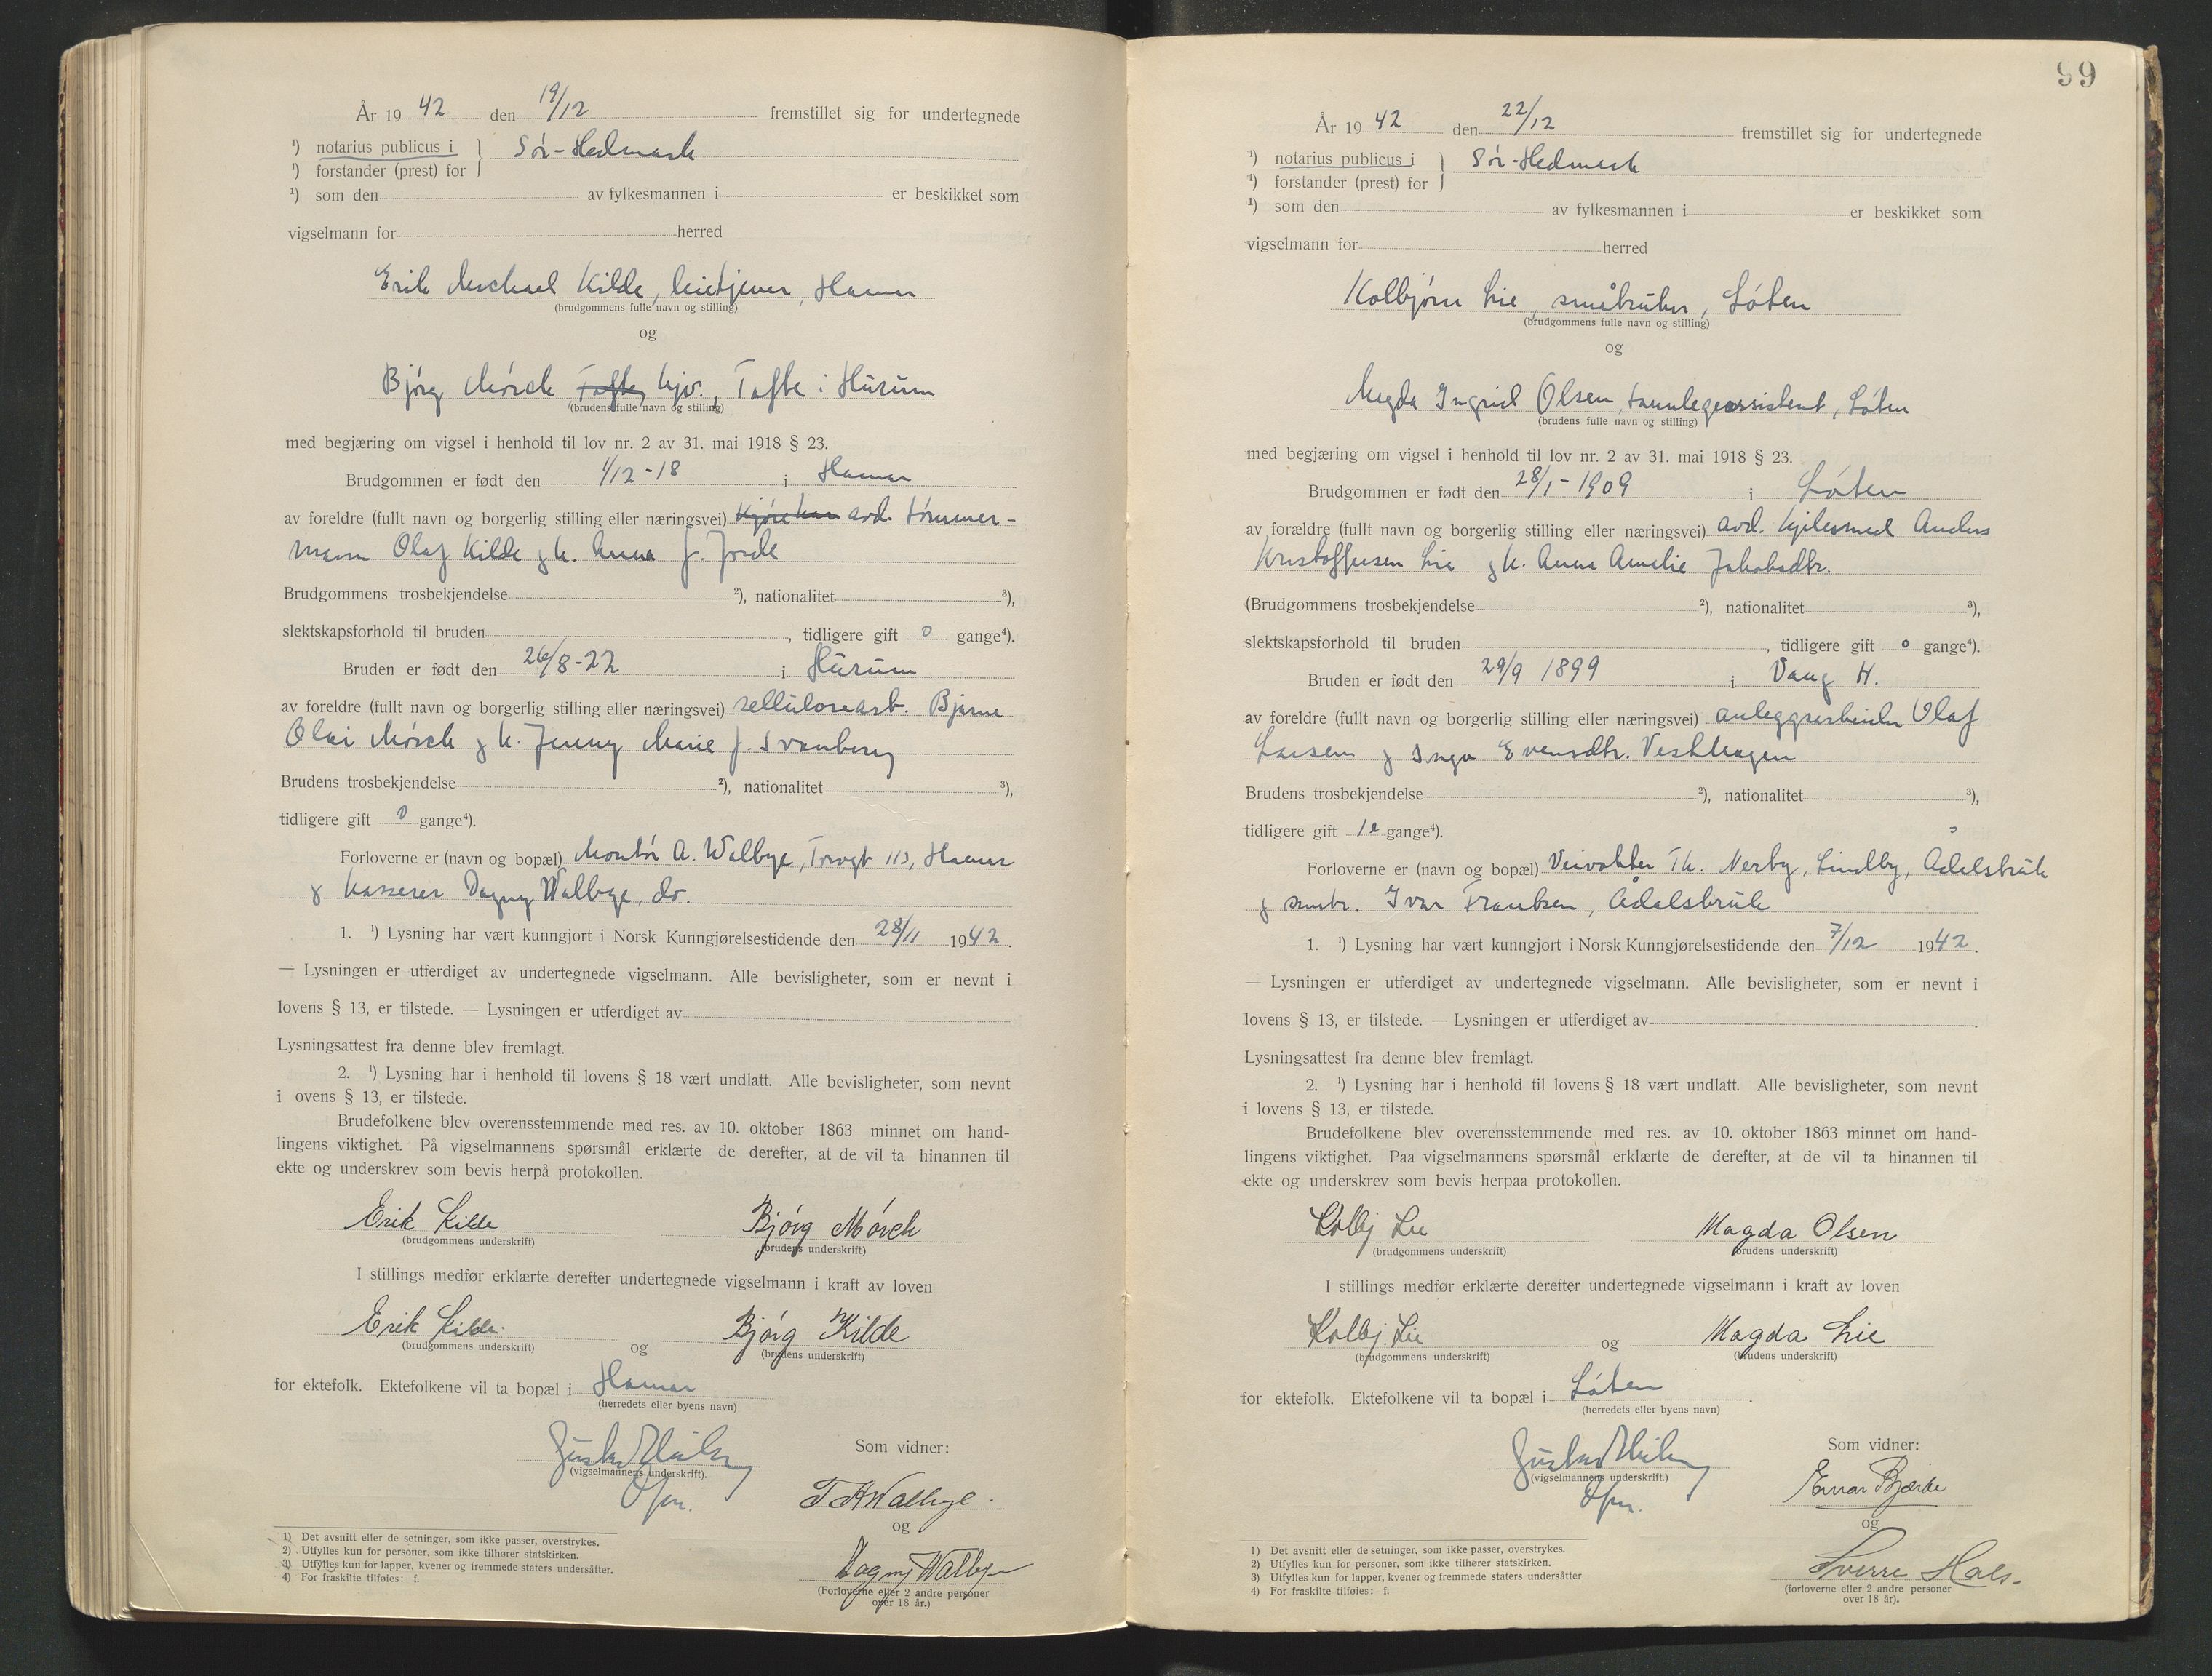 År 19 42 den 19/12 fremstillet sig for undertegnede
¹) notarius publicus i } Sør-Hedmark
¹) forstander (prest) for
¹) som den av fylkesmannen i er beskikket som
vigselmann for herred
Erik Michael Kilde, Hamar
(brudgommens fulle navn og stilling)
og
Bjørg Mørch Tofte hjv., Tofte i Hurum
(brudens fulle navn og stilling)
med begjæring om vigsel i henhold til lov nr. 2 av 31. mai 1918 § 23.
Brudgommen er født den 1/12-18 i Hamar
av foreldre (fullt navn og borgerlig stilling eller næringsvei) avd. tømmer-
mann Olaf Kilde og h. Anna f. Jorde
Brudgommens trosbekjendelse ²), nationalitet ³),
slektskapsforhold til bruden , tidligere gift 0 gange⁴).
Bruden er født den 26/8-22 i Hurum
av foreldre (fullt navn og borgerlig stilling eller næringsvei) cellulosearb. Bjarne
Olai Mørch og h. Jenny Marie f. Svanberg
Brudens trosbekjendelse ²), nationalitet ³),
tidligere gift 0 gange⁴).
Forloverne er (navn og bopæl) Montør A. Walbye, Torvgt 113, Hamar
og kasserer Dagny Walbye, do.
1. ¹) Lysning har vært kunngjort i Norsk Kunngjørelsestidende den 28/11 1942.
— Lysningen er utferdiget av undertegnede vigselmann. Alle bevisligheter, som er nevnt i
lovens § 13, er tilstede. — Lysningen er utferdiget av
Lysningsattest fra denne blev fremlagt.
2. ¹) Lysning har i henhold til lovens § 18 vært undlatt. Alle bevisligheter, som nevnt
i ovens § 13, er tilstede.
Brudefolkene blev overensstemmende med res. av 10. oktober 1863 minnet om hand-
lingens viktighet. På vigselmannens spørsmål erklærte de derefter, at de vil ta hinannen til
ekte og underskrev som bevis herpå protokollen.
Erik Kilde Bjørg Mørch
(brudgommens underskrift) (brudens underskrift)
I stillings medfør erklærte derefter undertegnede vigselmann i kraft av loven
Erik Kilde. og Bjørg Kilde
(brudgommens underskrift) (brudens underskrift)
for ektefolk. Ektefolkene vil ta bopæl i Hamar
(herredets eller byens navn)
Som vidner:
(vigselmannens underskrift).
Walbye.
og
Dagny Walbye
(Forloverne eller 2 andre personer
over 18 år.)
1) Det avsnitt eller de setninger, som ikke passer, overstrykes.
2) Utfylles kun for personer, som ikke tilhører statskirken.
3) Utfylles kun for lapper, kvener og fremmede staters undersåtter.
4) For fraskilte tilføies: f.
99
År 19 42 den 22/12 fremstillet sig for undertegnede
¹) notarius publicus i } Sør-Hedmark
¹) forstander (prest) for
¹) som den av fylkesmannen i er beskikket som
vigselmann for herred
Kolbjørn Lie, småbruker, Løten
(brudgommens fulle navn og stilling)
og
Magda Ingrid Olsen, tannlegeassistent, Løten
(brudens fulle navn og stilling)
med begjæring om vigsel i henhold til lov nr. 2 av 31. mai 1918 § 23.
Brudgommen er født den 28/1-1909 i Løten
av forældre (fullt navn og borgerlig stilling eller næringsvei) avd. hjulsmed Anders
Kristoffersen Lie og h. Anne Amelie Jakobsdtr.
(Brudgommens trosbekjendelse ²), nationalitet ³),
slektskapsforhold til bruden , tidligere gift 0 gange⁴).
Bruden er født den 29/9 1899 i Vang H.
av foreldre (fullt navn og borgerlig stilling eller næringsvei) anleggsarbeider Olaf
Larsen og Inga Evensdtr. Vesthagen
Brudens trosbekjendelse ²), nationalitet ³),
tidligere gift gange⁴).
Forloverne er (navn og bopæl) Veivokter Th. Nerby, Lindby, Ådalsbruk
og småbr. Ivar Frantsen, Ådalsbruk
1. ¹) Lysning har vært kunngjort i Norsk Kunngjørelsestidende den 7/12 1942.
— Lysningen er utferdiget av undertegnede vigselmann. Alle bevisligheter, som er nevnt i
lovens § 13, er tilstede. — Lysningen er utferdiget av .
Lysningsattest fra denne blev fremlagt.
2. ¹) Lysning har i henhold til lovens § 18 vært undlatt. Alle bevisligheter, som nevnt
i lovens § 13, er tilstede.
Brudefolkene blev overensstemmende med res. av 10. oktober 1863 minnet om hand-
lingens viktighet. Paa vigselmannens spørsmål erklærte de derefter, at de vil ta hinannen til
ekte og underskrev som bevis herpaa protokollen.
Kolbj Lie Magda Olsen
(brudgommens underskrift) (brudens underskrift)
I stillings medfør erklærte derefter undertegnede vigselmann i kraft av loven
Kolbj. Lie og Magda Lie
(brudgommens underskrift) (brudens underskrift)
for ektefolk. Ektefolkene vil ta bopæl i Løten.
(herredets eller byens navn)
Som vidner:
(vigselmannens underskrift.)
Einar Bjerke
og
Sverre Hals.
(forloverne eller 2 andre personer
over 18 år).
1) Det avsnitt eller de setninger, som ikke passer, overstrykes.
2) Utfylles kun for personer, som ikke tilhører statskirken.
3) Utfylles kun for lapper, kvener og fremmede staters undersåtter
4) For fraskilte tilføies: f.